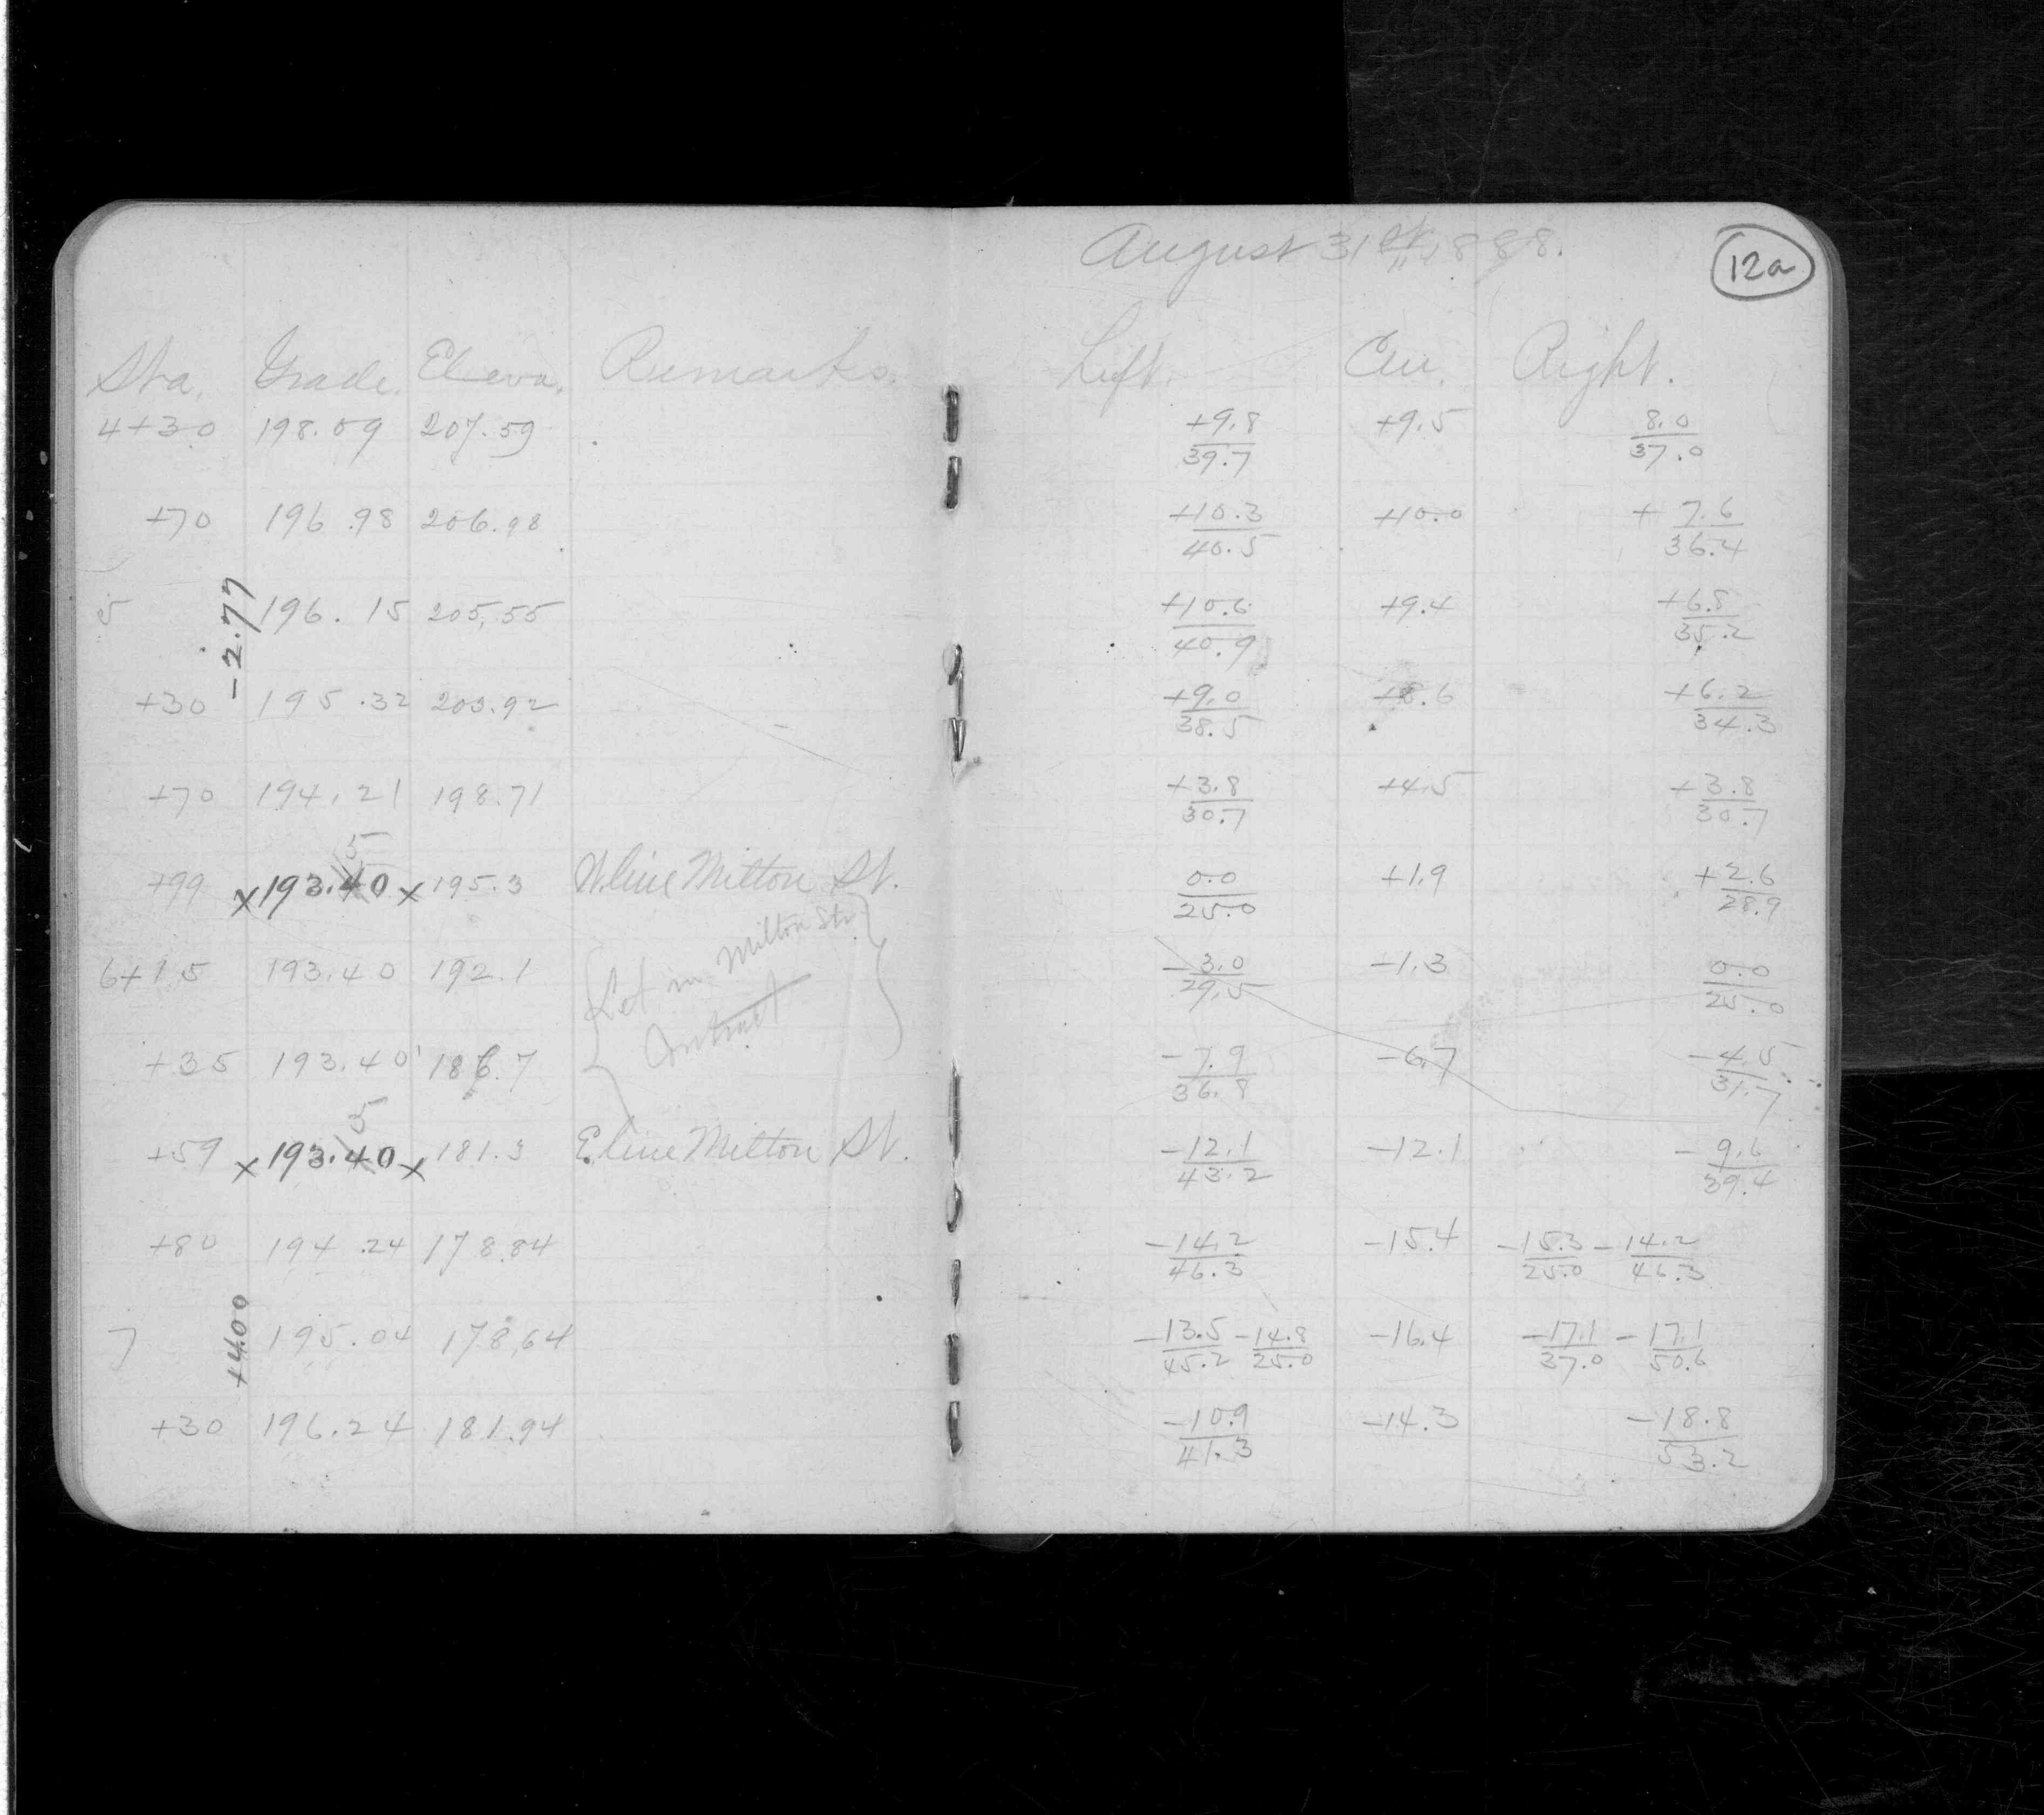 August 31st, 1888.
12a
Sta. Grade. Eleva. Remarks. Left. Cen. Right.
4+30 198.09 207.59 +9.8/39.7 +9.5 8.0/37.0
+70 196.98 206.98 +10.3/40.5 +10.0 +7.6/36.4
-2.77
5 196.15 205.55 +10.6/40.9 +9.4 +6.8/35.2
+30 195.32 203.92 +9.0/38.5 +8.6 +6.2/34.3
+70 194.21 198.71 +3.8/30.7 +4.5 +3.8/30.7
5
+99 x193.40x 195.3 W. line Milton St. 0.0/25.0 +1.9 +2.6/28.9
6+15 193.40 192.1 -3.0/29.5 -1.3 0.0/25.0
Let in Milton Str.
Contract
+35 193.40 186.7 -7.9/36.8 -6.7 -4.5/31.7
5
+59 x193.40x 181.3 E. line Milton St. -12.1/43.2 -12.1 -9.6/39.4
+80 194.24 178.84 -14.2/46.3 -15.4 -15.3/25.0 -14.2/46.3
+4.00
7 195.04 178.64 -13.5/45.2 -14.8/25.0 -16.4 -17.1/37.0 -17.1/50.6
+30 196.24 181.94 -10.9/41.3 -14.3 -18.8/53.2